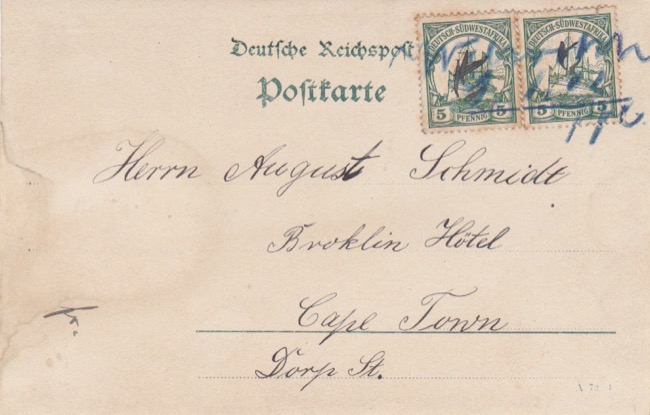 DEUTSCH-SÜDWESTAFRIKA DEUTSCH-SÜDWESTAFRIKA
Deutsche Reichspost
Postkarte
5 PFENNIG 5 5 PFENNIG 5
Herrn August Schmidt
Broklin Hôtel
Cape Town
Dorp St.